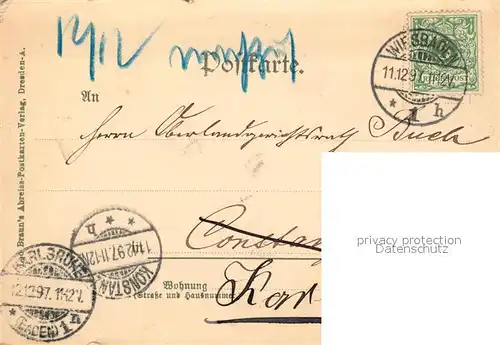 14/12
Postkarte.
An
Herrn Oberlandgerichtsrath Buch
Constan
Kar
Wohnung
(Straße und Hausnummer)
Braun's Abreiss-Postkarten-Verlag, Dresden-A.
WIESBADEN
11.12.97
1 h
REICHSPOST
KONSTANZ
11.12.97.11-12N
KARLSRUHE
12.12.97.11-12V.
(BADEN) 1 h
privacy protection
watermark DELCAMPE